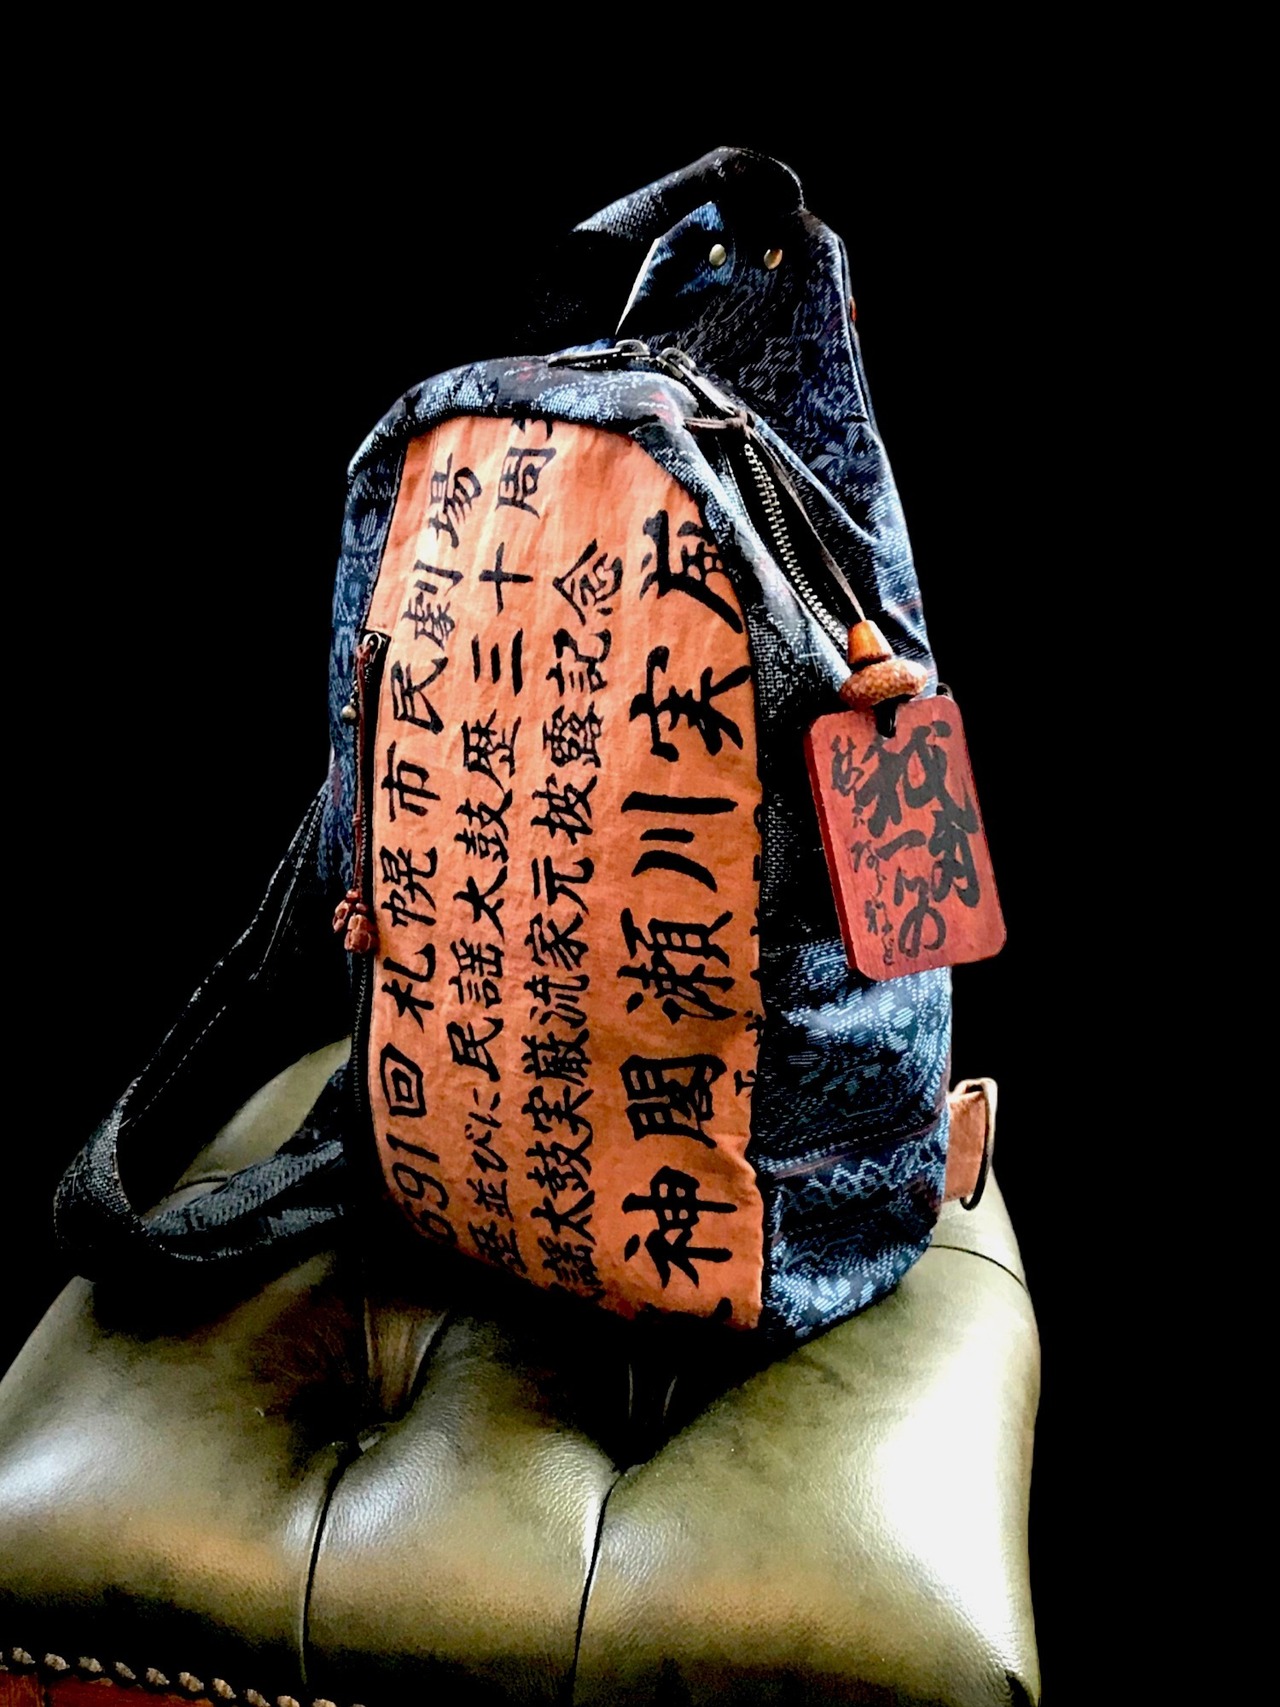 691回札幌市民劇場
歴並びに民謡太鼓歴三十周
謡太鼓実厳流家元披露記念
神閣瀬川実厳